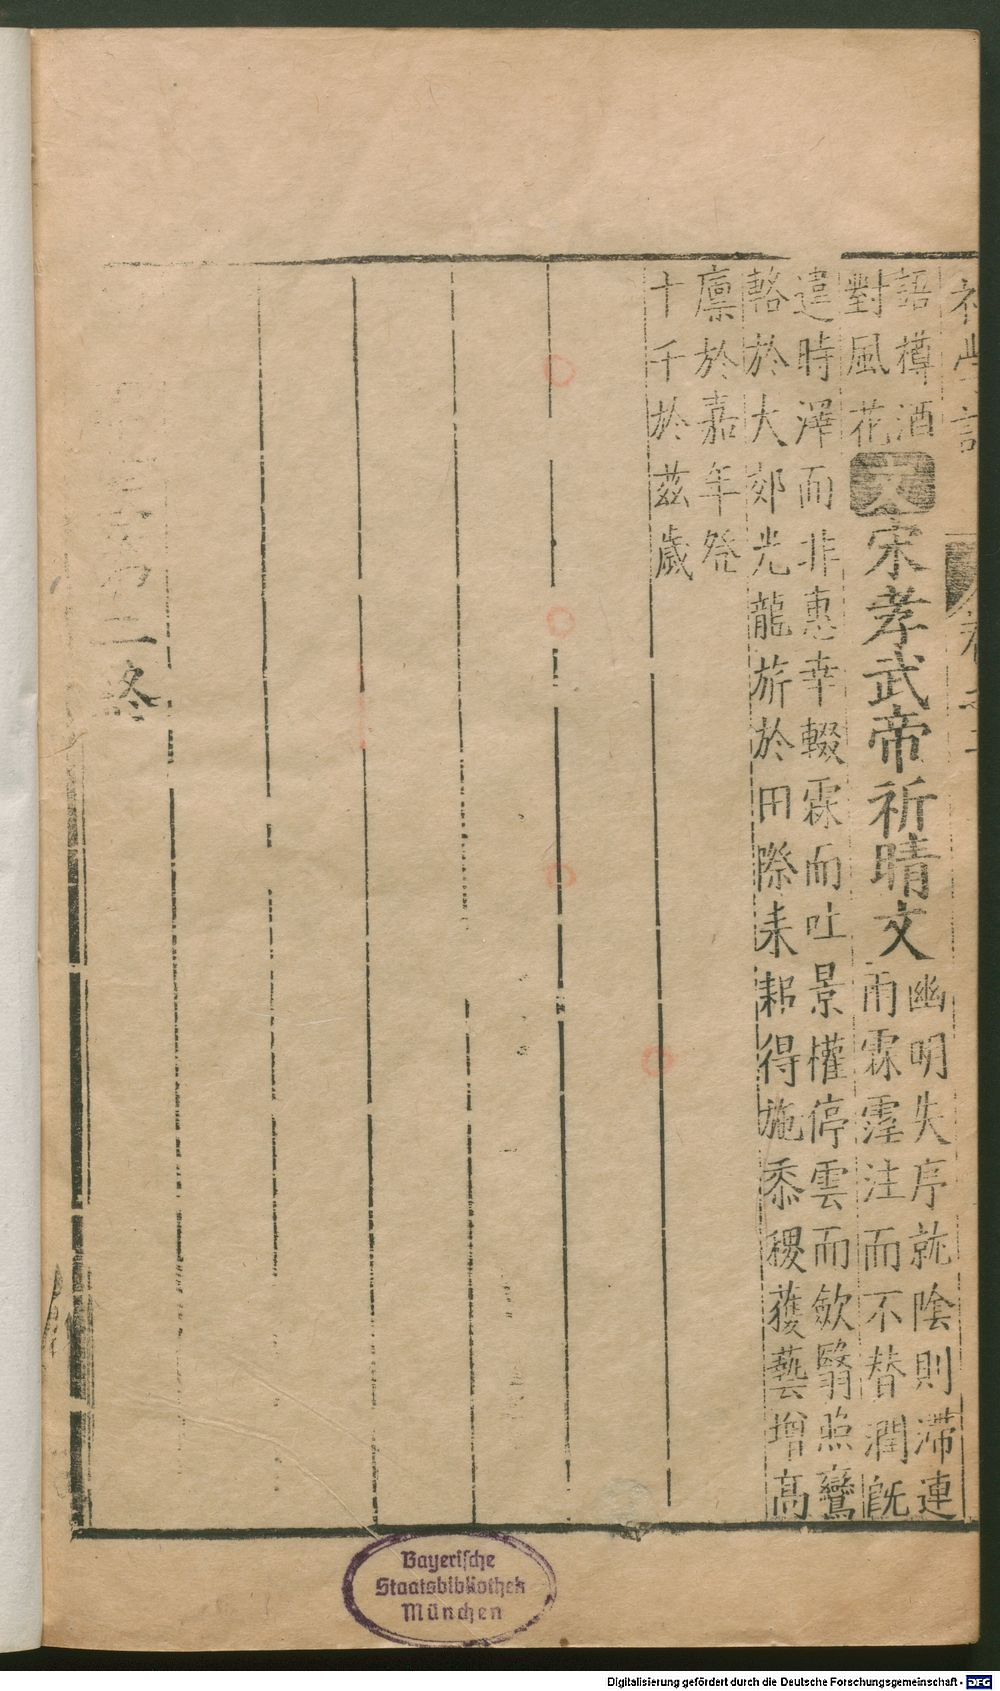 初學記
卷之二
語樽酒
對風花
文
宋孝武帝祈晴文
幽明失序就陰則滯連
雨霖霪注而不替潤既
違時澤而非惠幸輟霖而吐景權停雲而歛翳照鸞
輅於大郊光龍旂於田際耒耜得施黍稷獲藝增高
廩於嘉年登
十千於茲歲
二終
Bayerische
Staatsbibliothek
München
Digitalisierung gefördert durch die Deutsche Forschungsgemeinschaft - DFG